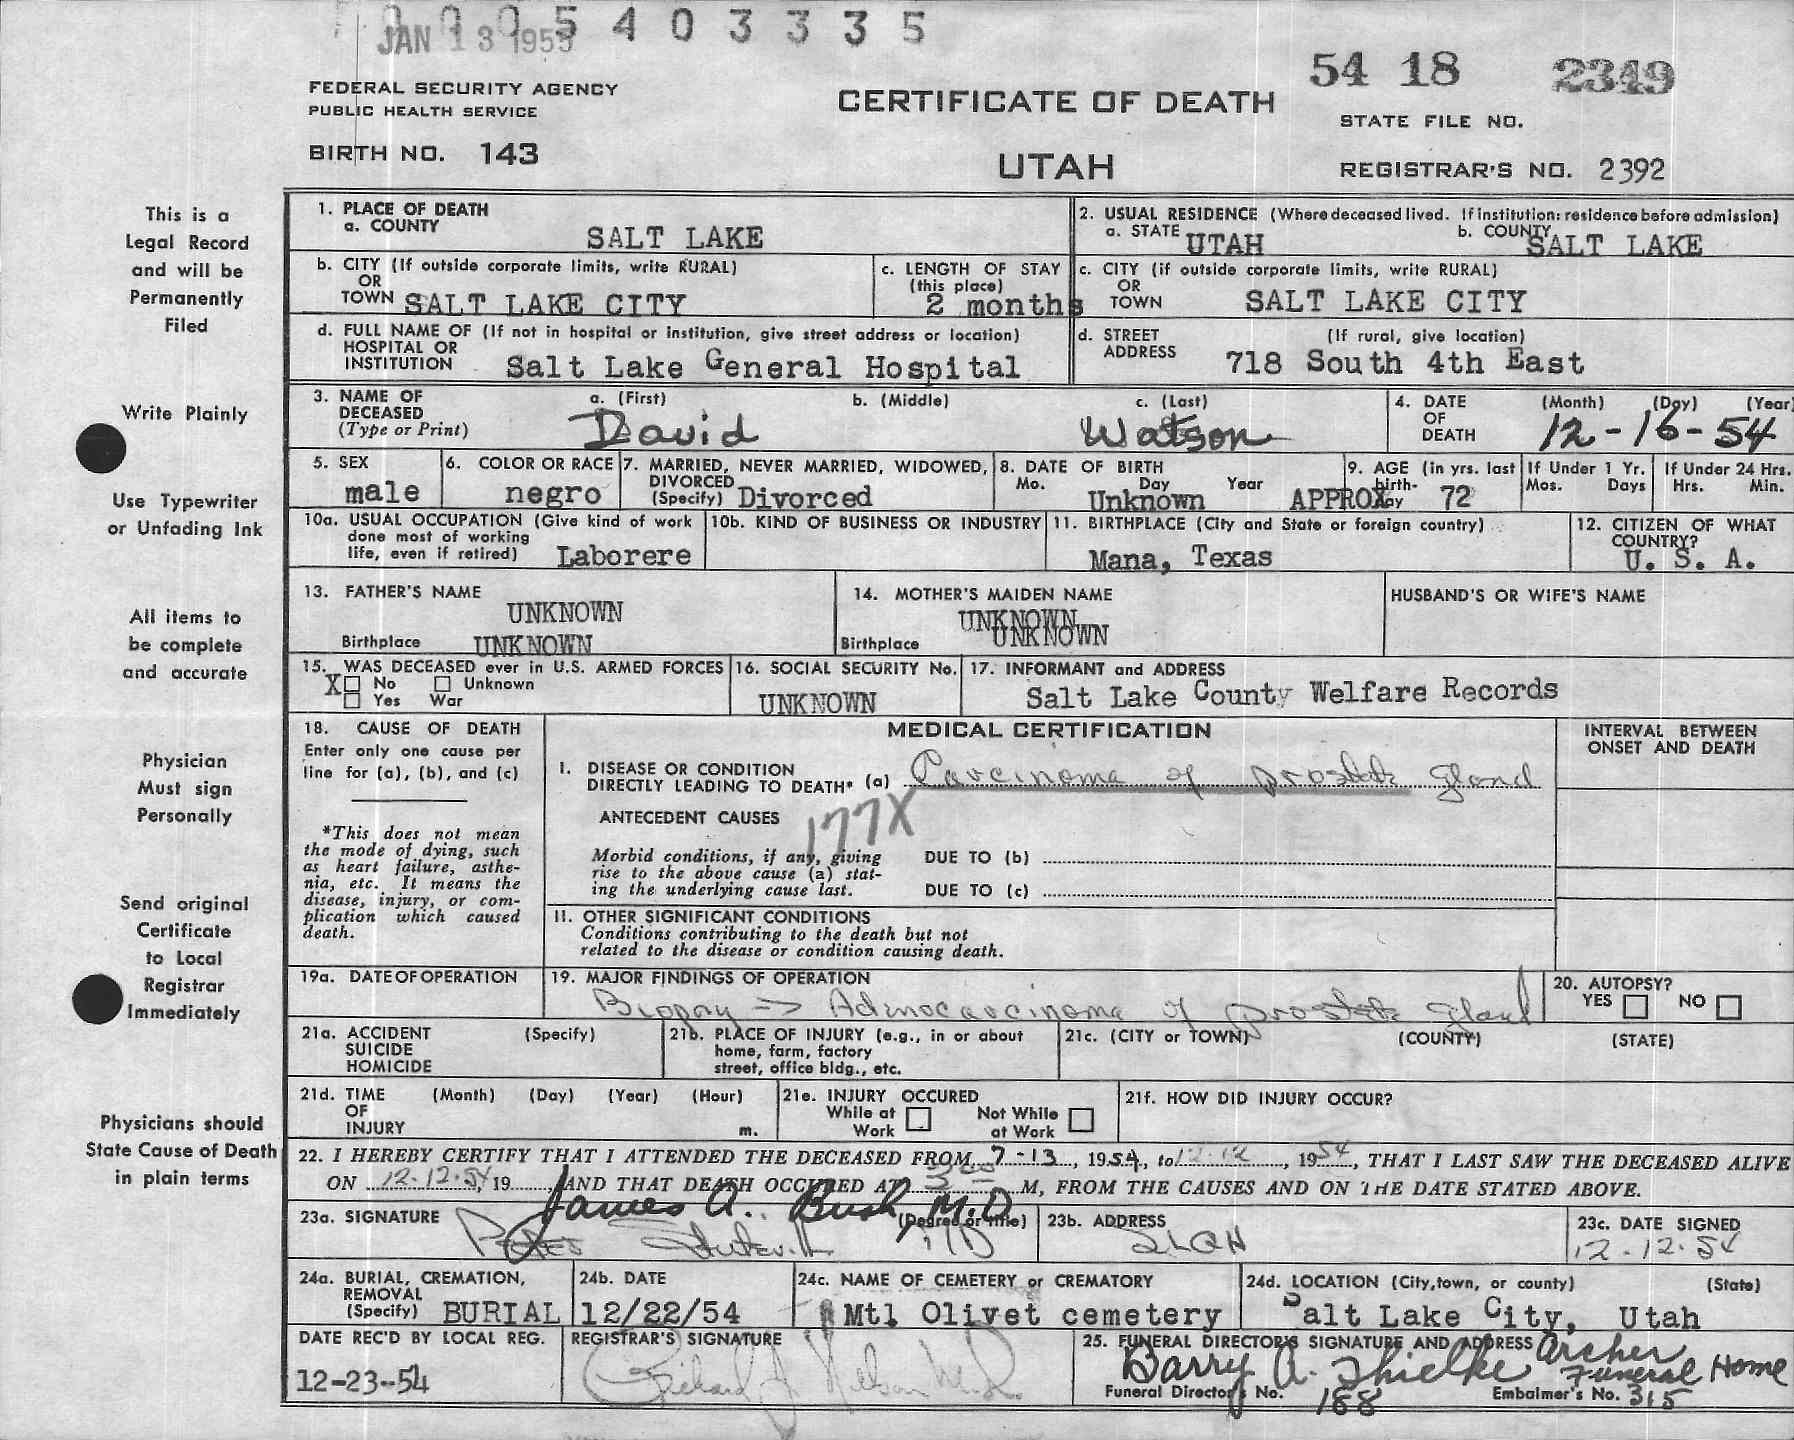 0 0 0 5 4 0 3 3 3 5
JAN 13 1955
54 18 2349
FEDERAL SECURITY AGENCY
PUBLIC HEALTH SERVICE
CERTIFICATE OF DEATH
STATE FILE NO.
BIRTH NO. 143
UTAH
REGISTRAR'S NO. 2392
This is a
Legal Record
and will be
Permanently
Filed
Write Plainly
Use Typewriter
or Unfading Ink
All items to
be complete
and accurate
Physician
Must sign
Personally
Send original
Certificate
to Local
Registrar
Immediately
Physicians should
State Cause of Death
in plain terms
1. PLACE OF DEATH
a. COUNTY SALT LAKE
2. USUAL RESIDENCE (Where deceased lived. If institution: residence before admission)
a. STATE UTAH b. COUNTY SALT LAKE
b. CITY (If outside corporate limits, write RURAL)
OR
TOWN SALT LAKE CITY
c. LENGTH OF STAY
(this place)
2 months
c. CITY (if outside corporate limits, write RURAL)
OR
TOWN SALT LAKE CITY
d. FULL NAME OF (If not in hospital or institution, give street address or location)
HOSPITAL OR
INSTITUTION Salt Lake General Hospital
d. STREET (If rural, give location)
ADDRESS 718 South 4th East
3. NAME OF a. (First) b. (Middle) c. (Last)
DECEASED
(Type or Print) David Watson
4. DATE (Month) (Day) (Year)
OF
DEATH 12-16-54
5. SEX
male
6. COLOR OR RACE
negro
7. MARRIED, NEVER MARRIED, WIDOWED,
DIVORCED
(Specify) Divorced
8. DATE OF BIRTH
Mo. Day Year
Unknown
9. AGE (in yrs. last
birth-
APPROX 72
If Under 1 Yr.
Mos. Days
If Under 24 Hrs.
Hrs. Min.
10a. USUAL OCCUPATION (Give kind of work
done most of working
life, even if retired) Laborere
10b. KIND OF BUSINESS OR INDUSTRY
11. BIRTHPLACE (City and State or foreign country)
Mana, Texas
12. CITIZEN OF WHAT
COUNTRY?
U. S. A.
13. FATHER'S NAME
UNKNOWN
Birthplace UNKNOWN
14. MOTHER'S MAIDEN NAME
UNKNOWN
Birthplace UNKNOWN
HUSBAND'S OR WIFE'S NAME
15. WAS DECEASED ever in U.S. ARMED FORCES
X No Unknown
Yes War
16. SOCIAL SECURITY No.
UNKNOWN
17. INFORMANT and ADDRESS
Salt Lake County Welfare Records
18. CAUSE OF DEATH
Enter only one cause per
line for (a), (b), and (c)
*This does not mean
the mode of dying, such
as heart failure, asthe-
nia, etc. It means the
disease, injury, or com-
plication which caused
death.
MEDICAL CERTIFICATION
INTERVAL BETWEEN
ONSET AND DEATH
I. DISEASE OR CONDITION
DIRECTLY LEADING TO DEATH* (a) Carcinoma of prostate gland
177X
ANTECEDENT CAUSES
Morbid conditions, if any, giving
rise to the above cause (a) stat-
ing the underlying cause last.
DUE TO (b)
DUE TO (c)
II. OTHER SIGNIFICANT CONDITIONS
Conditions contributing to the death but not
related to the disease or condition causing death.
19a. DATE OF OPERATION
19. MAJOR FINDINGS OF OPERATION
Biopsy → Adenocarcinoma of prostate gland
20. AUTOPSY?
YES NO
21a. ACCIDENT (Specify)
SUICIDE
HOMICIDE
21b. PLACE OF INJURY (e.g., in or about
home, farm, factory
street, office bldg., etc.
21c. (CITY or TOWN) (COUNTY) (STATE)
21d. TIME (Month) (Day) (Year) (Hour)
OF
INJURY m.
21e. INJURY OCCURED
While at Work Not While at Work
21f. HOW DID INJURY OCCUR?
22. I HEREBY CERTIFY THAT I ATTENDED THE DECEASED FROM 7-13, 1954, to 12-12, 1954, THAT I LAST SAW THE DECEASED ALIVE
ON 12.12.54, 19 , AND THAT DEATH OCCURED AT M, FROM THE CAUSES AND ON THE DATE STATED ABOVE.
James A. Bush, M.D.
23a. SIGNATURE (Degree or title) MD
23b. ADDRESS
SLGH
23c. DATE SIGNED
12.12.54
24a. BURIAL, CREMATION,
REMOVAL
(Specify) BURIAL
24b. DATE
12/22/54
24c. NAME OF CEMETERY or CREMATORY
Mtl Olivet cemetery
24d. LOCATION (City, town, or county) (State)
Salt Lake City, Utah
DATE REC'D BY LOCAL REG.
12-23-54
REGISTRAR'S SIGNATURE
25. FUNERAL DIRECTOR'S SIGNATURE AND ADDRESS Archer
Barry A. Thielke Funeral Home
Funeral Director's No. 188 Embalmer's No. 315